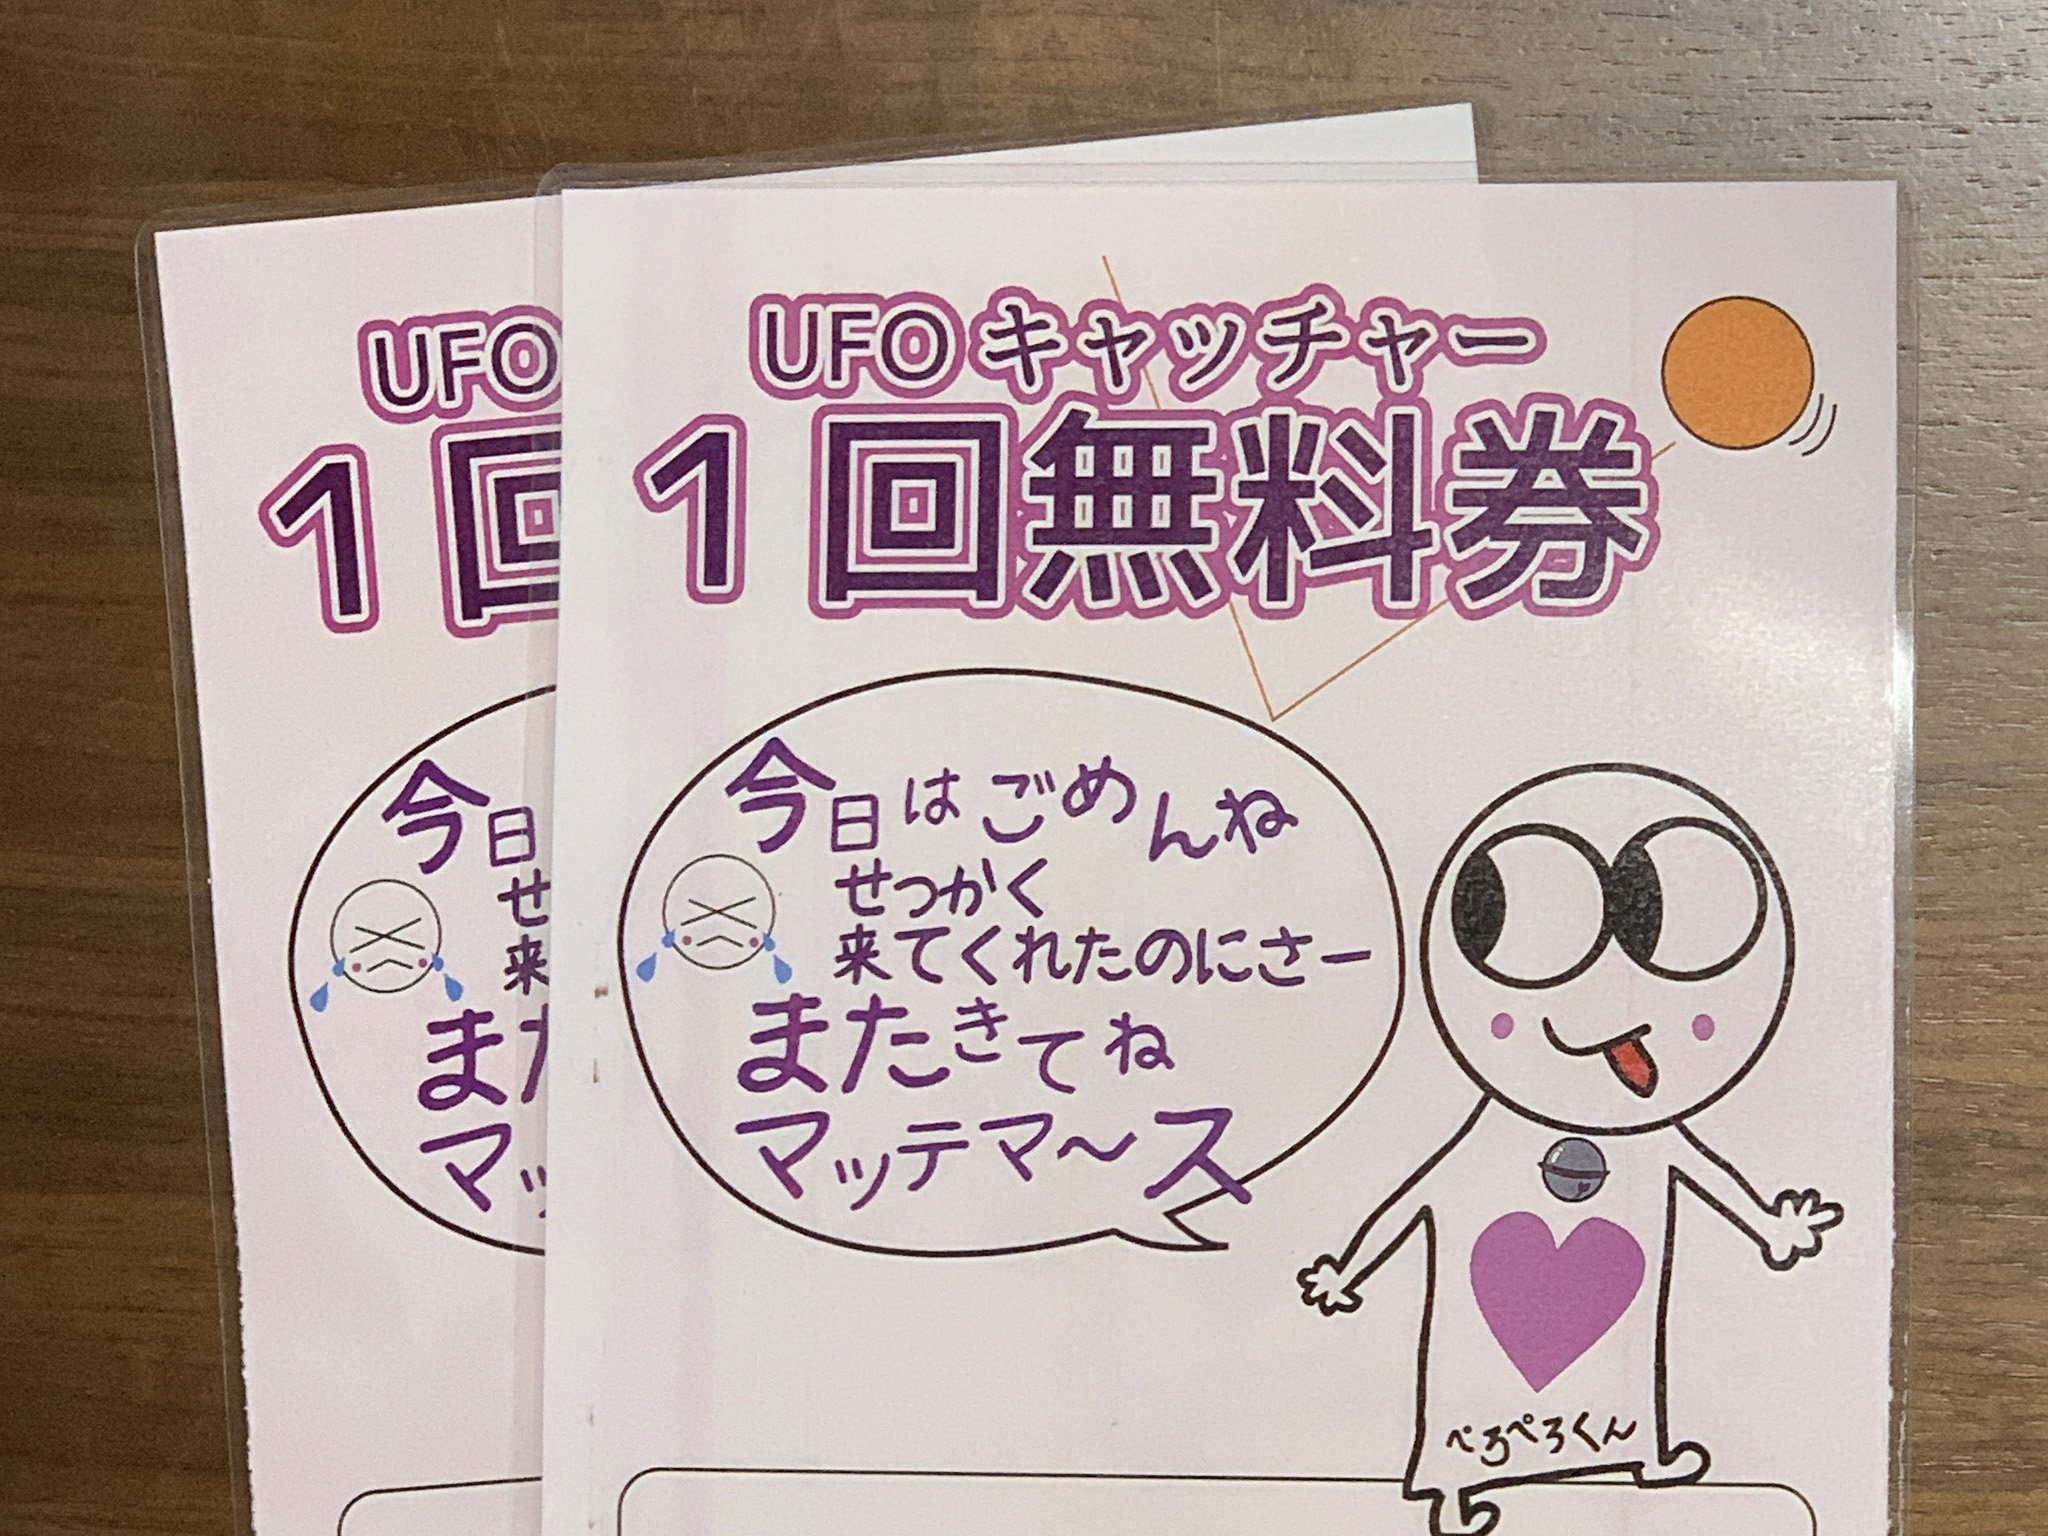 UFO
1回
今日
せ
来
また
マッ
UFOキャッチャー
1回無料券
今日はごめんね
せっかく
来てくれたのにさー
またきてね
マッテマ〜ス
ぺろぺろくん